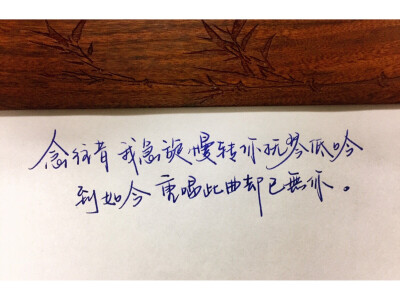 念往昔 我急旋慢转你抚琴低吟
到如今 重唱此曲却已無你。